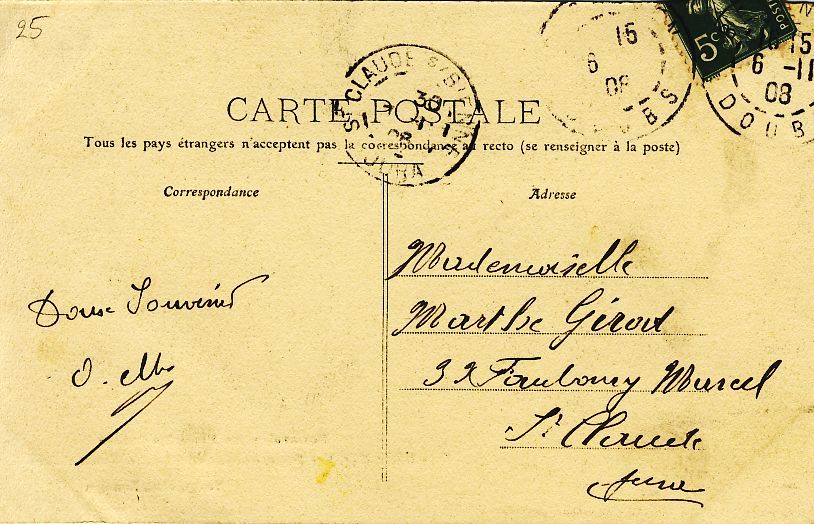 25
5c
15
6 -11
08
DOUB
15
6
08
UBS
ST CLAUDE S/BIENNE
30
08
JURA
CARTE POSTALE
Tous les pays étrangers n'acceptent pas la correspondance au recto (se renseigner à la poste)
Correspondance
Adresse
Doux Souvenir
Mademoiselle
Marthe Girod
32 Faubourg Marcel
St Claude
Jura